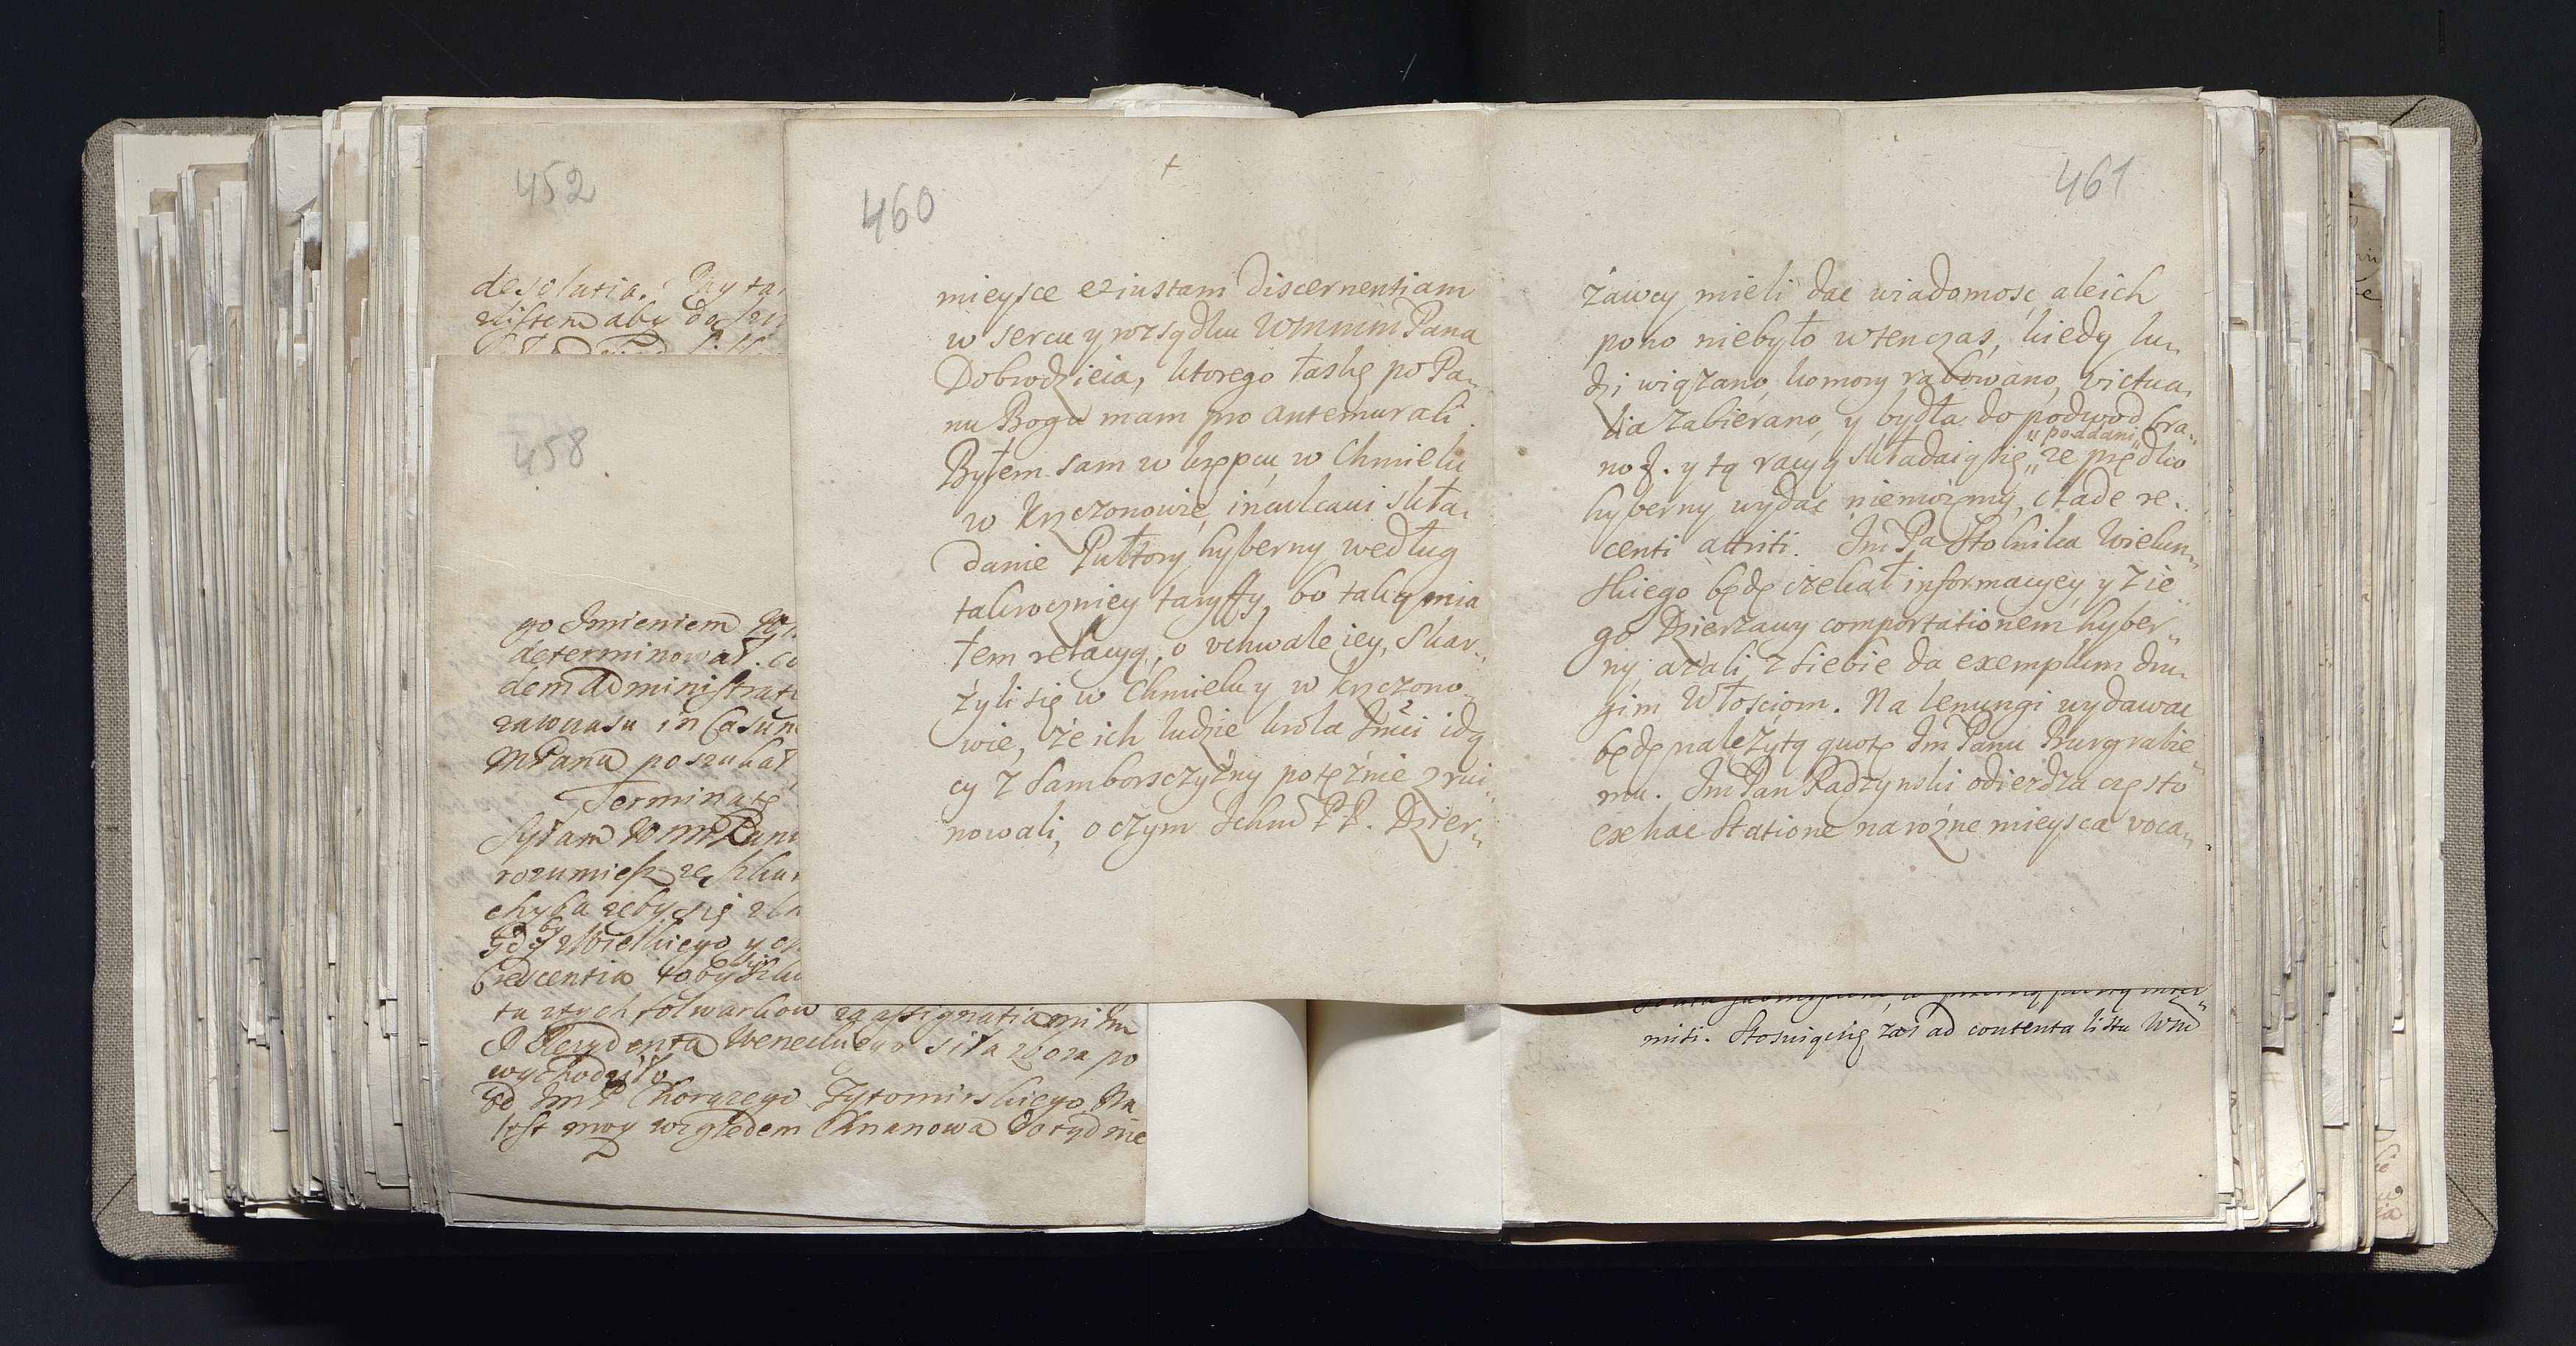 452
desolatia. Przy ta
listem aby do
458
go Imieniem
determinował. co
dem Administrato
zawczasu in Casum
MPana poszukał
Terminatę
Sylam WMMPanu
rozumiesz ze
chyba zeby się zła
Gdyby Wielkiego y
Credcentia toby się
ta ztych folwarkow za assignatiami Im
P Rezydenta Weneckiego siła zboza po
wychodziło
Od ImP Chorązego Zytomirskiego Na
list moy względem Chnanowa dotąd nie
460
+
mieysce et iustam discernentiam
w sercu y rozsądku WMMM Pana
Dobrodzieia, ktorego łaskę po Pa„
nu Bogu mam pro antemurali.
Byłem sam w krępcu, w Chmielu
w Krzczonowie, inculcavi skła„
danie Pułtory hyberny według
takroczniey taryffy, bo taką mia
łem relacyą, o uchwale iey, Skar„
żyli się w Chmielu y w krzczono„
wie, że ich ludzie krola Jmći idą
cy z Samborsczyzny potężnie zrui„
nowali, o czym Ichm PP. Dzier„
461
żawcy mieli dac wiadomosc, ale ich
pono niebyło wtenczas, kiedy lu„
dzi wiązano, komory rabowano, victua„
lia zabierano, y bydła do podwod bra„
no &. y tą racyą składaią się „poddani„ ze prędko
hyberny wydac niemożemy, clade re„
centi attriti. Jm Pa Stolnika Wielun„
skiego będę czekał informacyey, y z ie„
go Dzierzawy comportationem hyber„
ny, azali z siebie da exemplum dru„
gim Włosciom. Na lenungi wydawac
będę należytą quotę Jm Panu Burgrabie„
mu. Jm Pan Radzynski odiezdza często
ex hac statione na rozne mieysca voca„
miti. Stosuiącsię zas ad contenta listu Wm